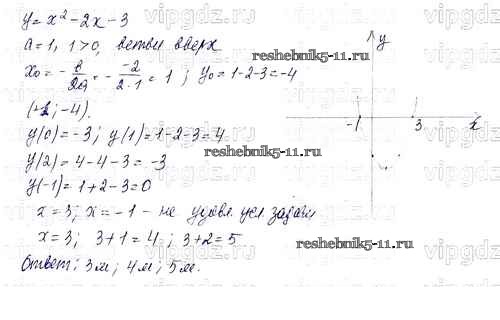 y = x² - 2x - 3
a = 1, 1 > 0, ветви вверх
x₀ = - b/2a = - -2/2·1 = 1 ; y₀ = 1 - 2 - 3 = -4
(1; -4).
y(0) = -3; y(1) = 1 - 2 - 3 = 4
y(2) = 4 - 4 - 3 = -3
y(-1) = 1 + 2 - 3 = 0
x = 3; x = -1 - не удовл. усл. задачи
x = 3; 3 + 1 = 4; 3 + 2 = 5
Ответ: 3м; 4м; 5м.
y
-1 3 x
reshebnik5-11.ru
reshebnik5-11.ru
reshebnik5-11.ru
vipgdz.ru
vipgdz.ru
vipgdz.ru